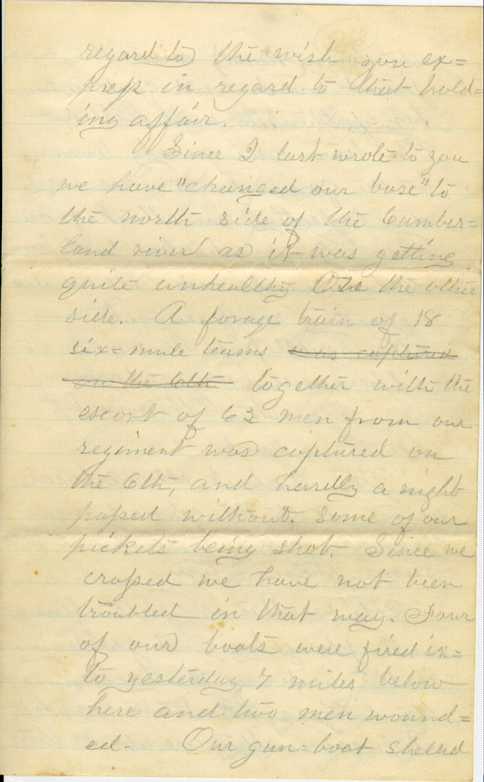 regard to the wish you ex=
press in regard to that hold=
ing affair.
Since I last wrote to you
we have "changed our base" to
the north side of the Cumber=
land river as it was getting
quite unhealthy on the other
side. A forage train of 18
six=mule teams was captured
on the 6th together with the
escort of 62 men from our
regiment was captured on
the 6th, and hardly a night
passed without some of our
pickets being shot. Since we
crossed we have not been
troubled in that way. Four
of our boats were fired in=
to yesterday 7 miles below
here and two men wound=
ed. Our gun=boat shelled